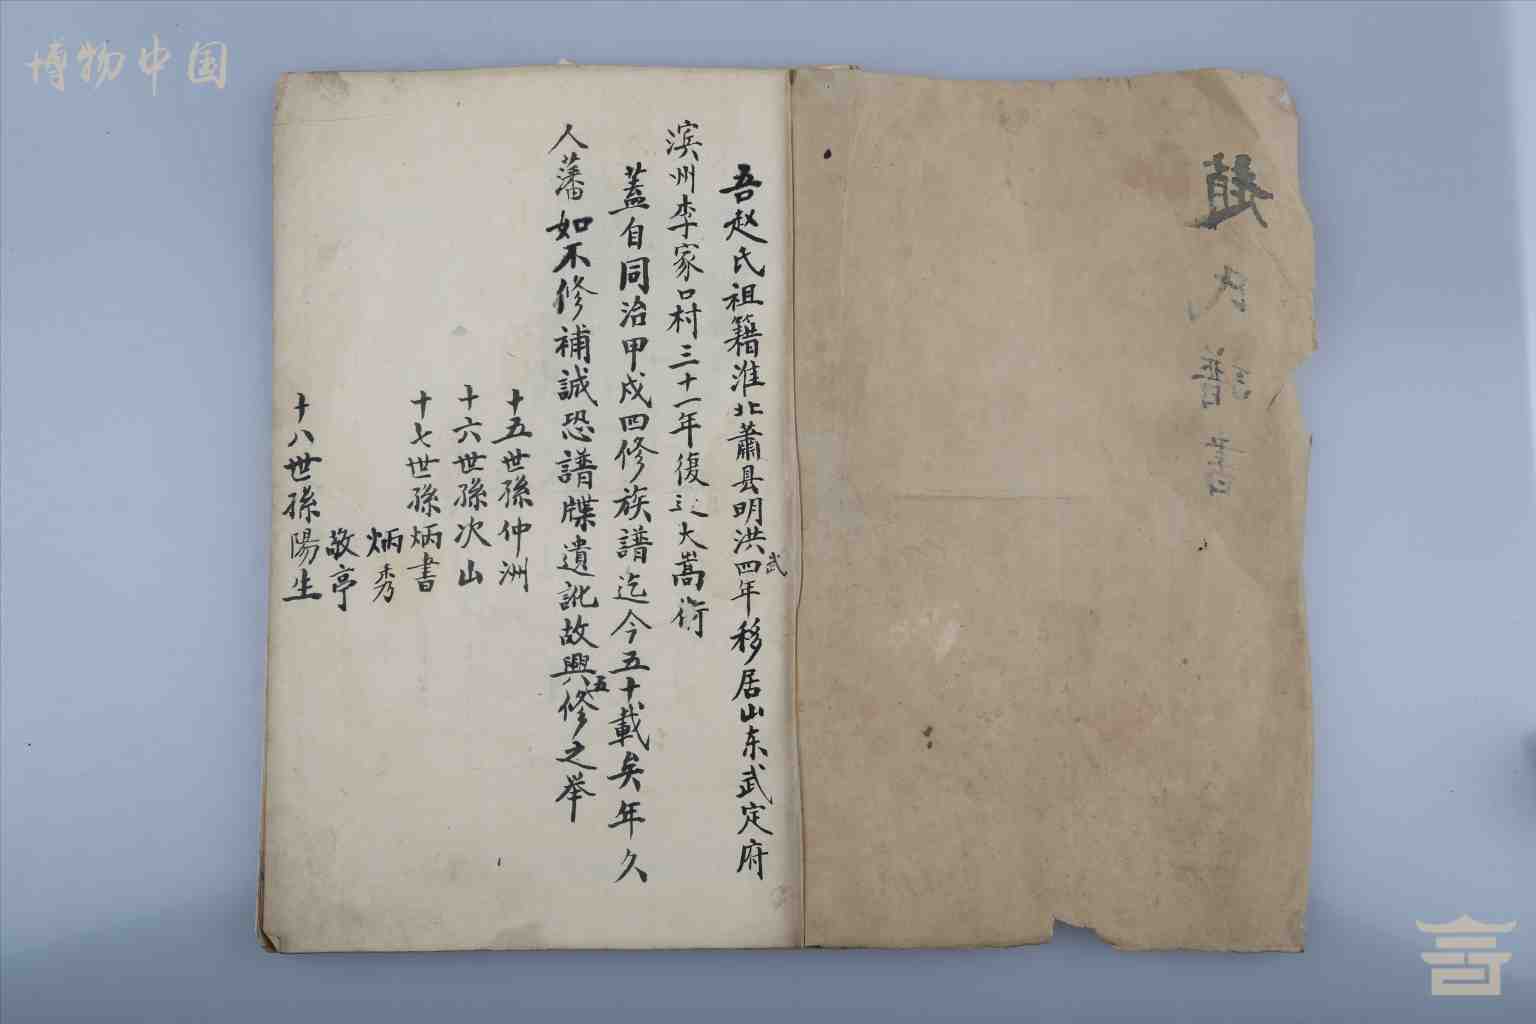 博物中国
趙氏譜書
吾赵氏祖籍淮北蕭县明洪武四年移居山东武定府
滨州李家口村三十一年復迁大嵩衛
蓋自同治甲戌四修族譜迄今五十載矣年久
人藩如不修補誠恐譜牒遺訛故興五修之举
十五世孫仲洲
十六世孫次山
十七世孫炳書
炳秀
敬亭
十八世孫陽生